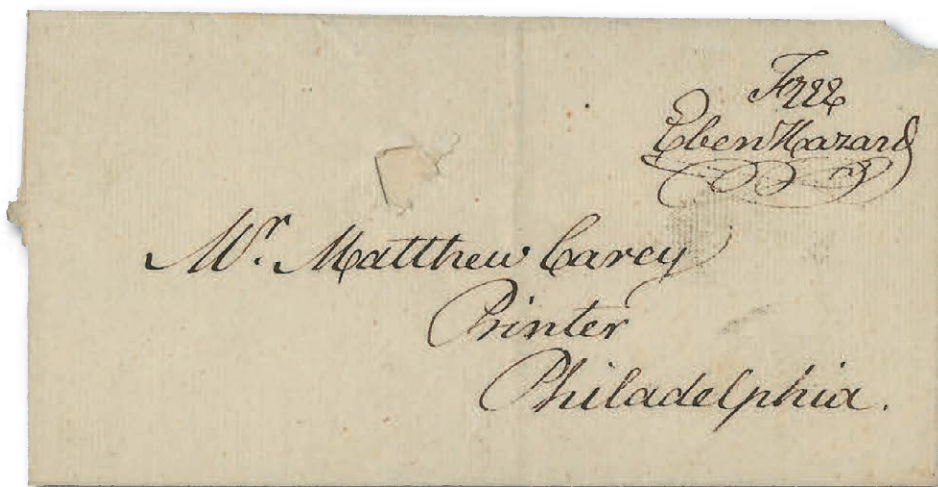 Free
Eben Hazard
Mr. Matthew Carey
Printer
Philadelphia.